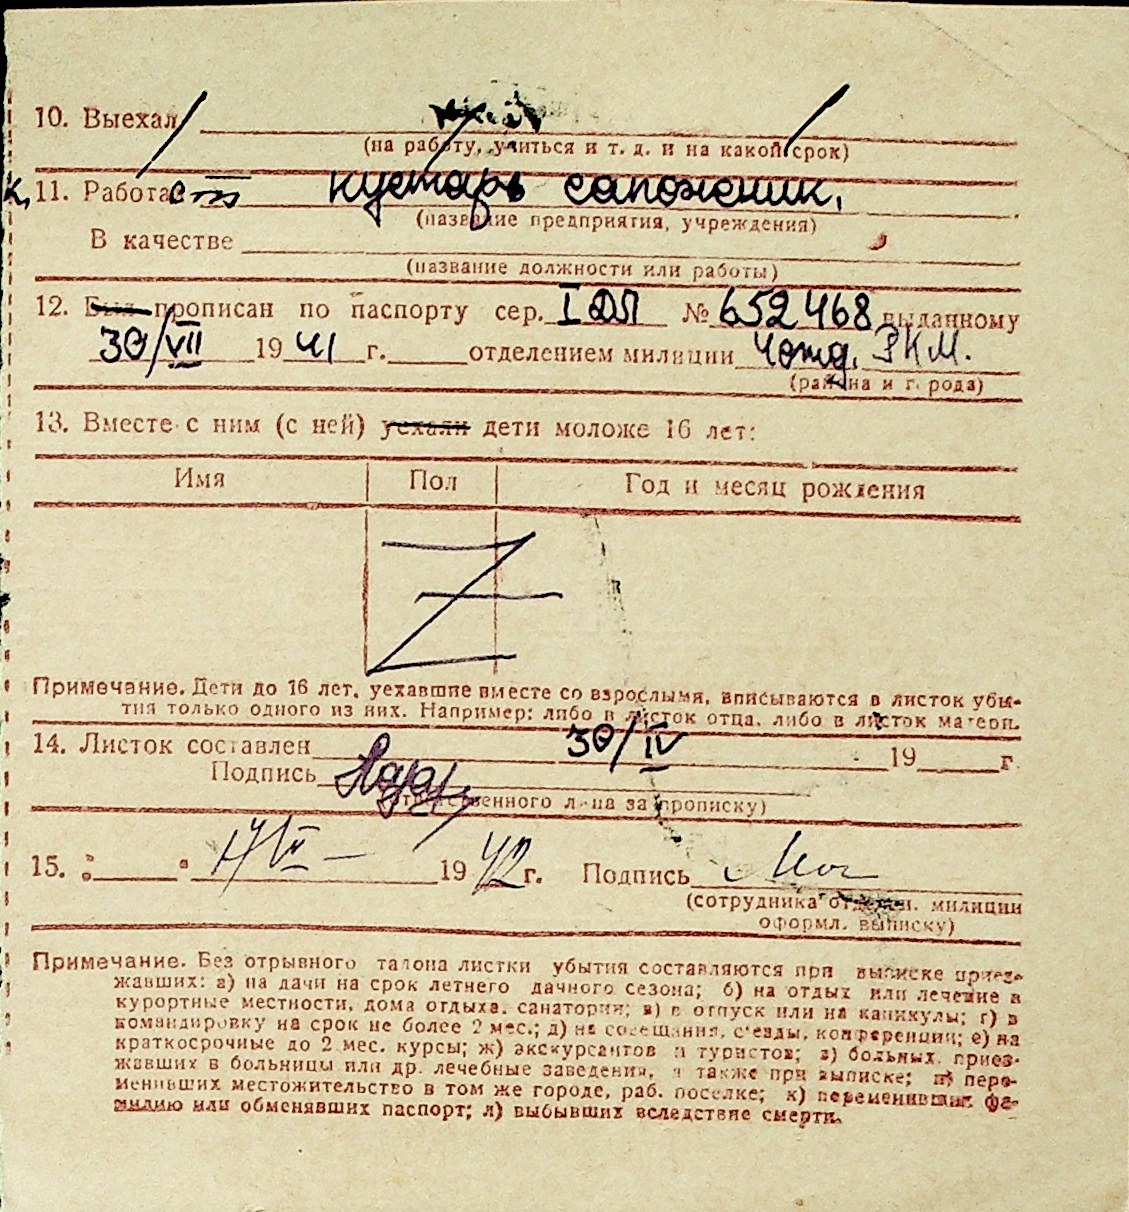 10. Выехал
(на работу, учиться и т. д. и на какой срок)
к, 11. Работает кустарь сапожник.
(название предприятия, учреждения)
В качестве
(название должности или работы)
12. Был прописан по паспорту сер. I ДЛ № 652468 выданному
30/VII 19 41 г. отделением милиции 4 отд. РКМ.
(района и города)
13. Вместе с ним (с ней) уехали дети моложе 16 лет:
Имя Пол Год и месяц рождения
Z
Примечание. Дети до 16 лет, уехавшие вместе со взрослыми, вписываются в листок убы-
тия только одного из них. Например: либо в листок отца, либо в листок матери.
14. Листок составлен 30/IV 19 г.
Подпись
(ответственного лица за прописку)
15. 19 42 г. Подпись
(сотрудника отделен. милиции
оформл. выписку)
Примечание. Без отрывного талона листки убытия составляются при выписке приез-
жавших: а) на дачи на срок летнего дачного сезона; б) на отдых или лечение в
курортные местности, дома отдыха, санатории; в) в отпуск или на каникулы; г) в
командировку на срок не более 2 мес.; д) на совещания, съезды, конференции; е) на
краткосрочные до 2 мес. курсы; ж) экскурсантов и туристов; з) больных, приез-
жавших в больницы или др. лечебные заведения, а также при выписке; и) пере-
менивших местожительство в том же городе, раб. поселке; к) переменивших фа-
милию или обменявших паспорт; л) выбывших вследствие смерти.